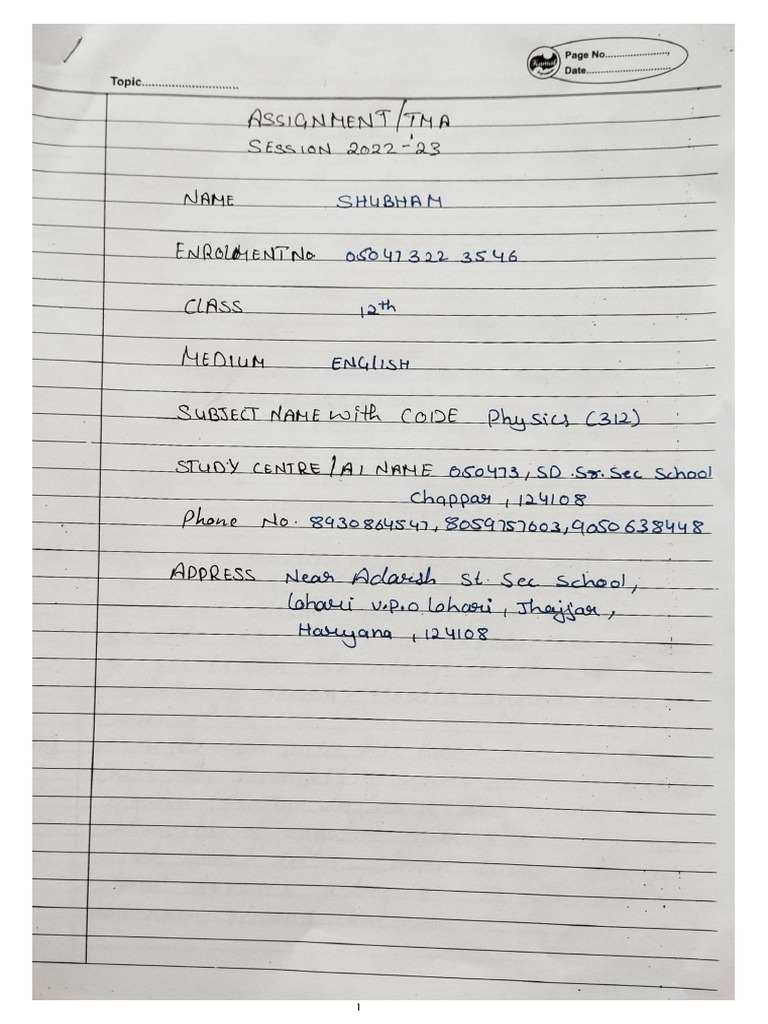 Page No.
Kamal
Date
Topic
ASSIGNMENT/TMA
SESSION 2022-'23
NAME SHUBHAM
ENROLMENT No 050473223546
CLASS 12th
MEDIUM ENGLISH
SUBJECT NAME with CODE Physics (312)
STUDY CENTRE/AI NAME 050473, SD. Sr. Sec School
Chappar, 124108
Phone No. 8930864547, 8059757603, 9050638448
ADDRESS Near Adarsh St. Sec School,
Lohari V.P.O Lohari, Jhajjar,
Haryana, 124108
1